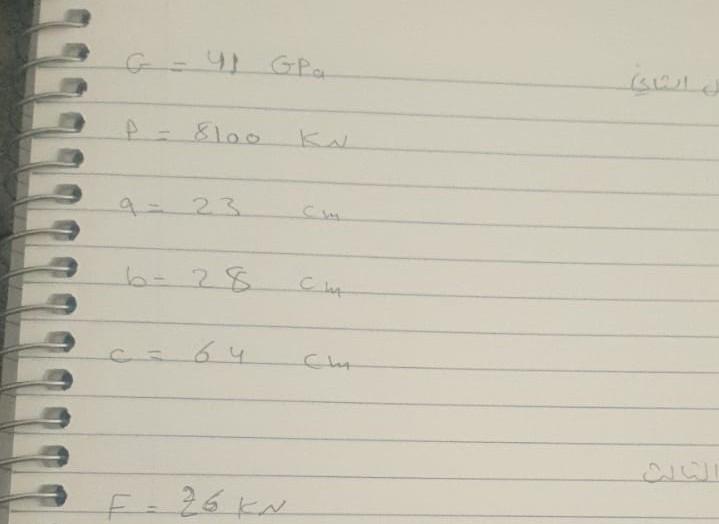 G = 41 GPa
الثاني
P = 8100 KN
a = 23 cm
b = 28 cm
c = 64 cm
الثالث
F = 26 KN